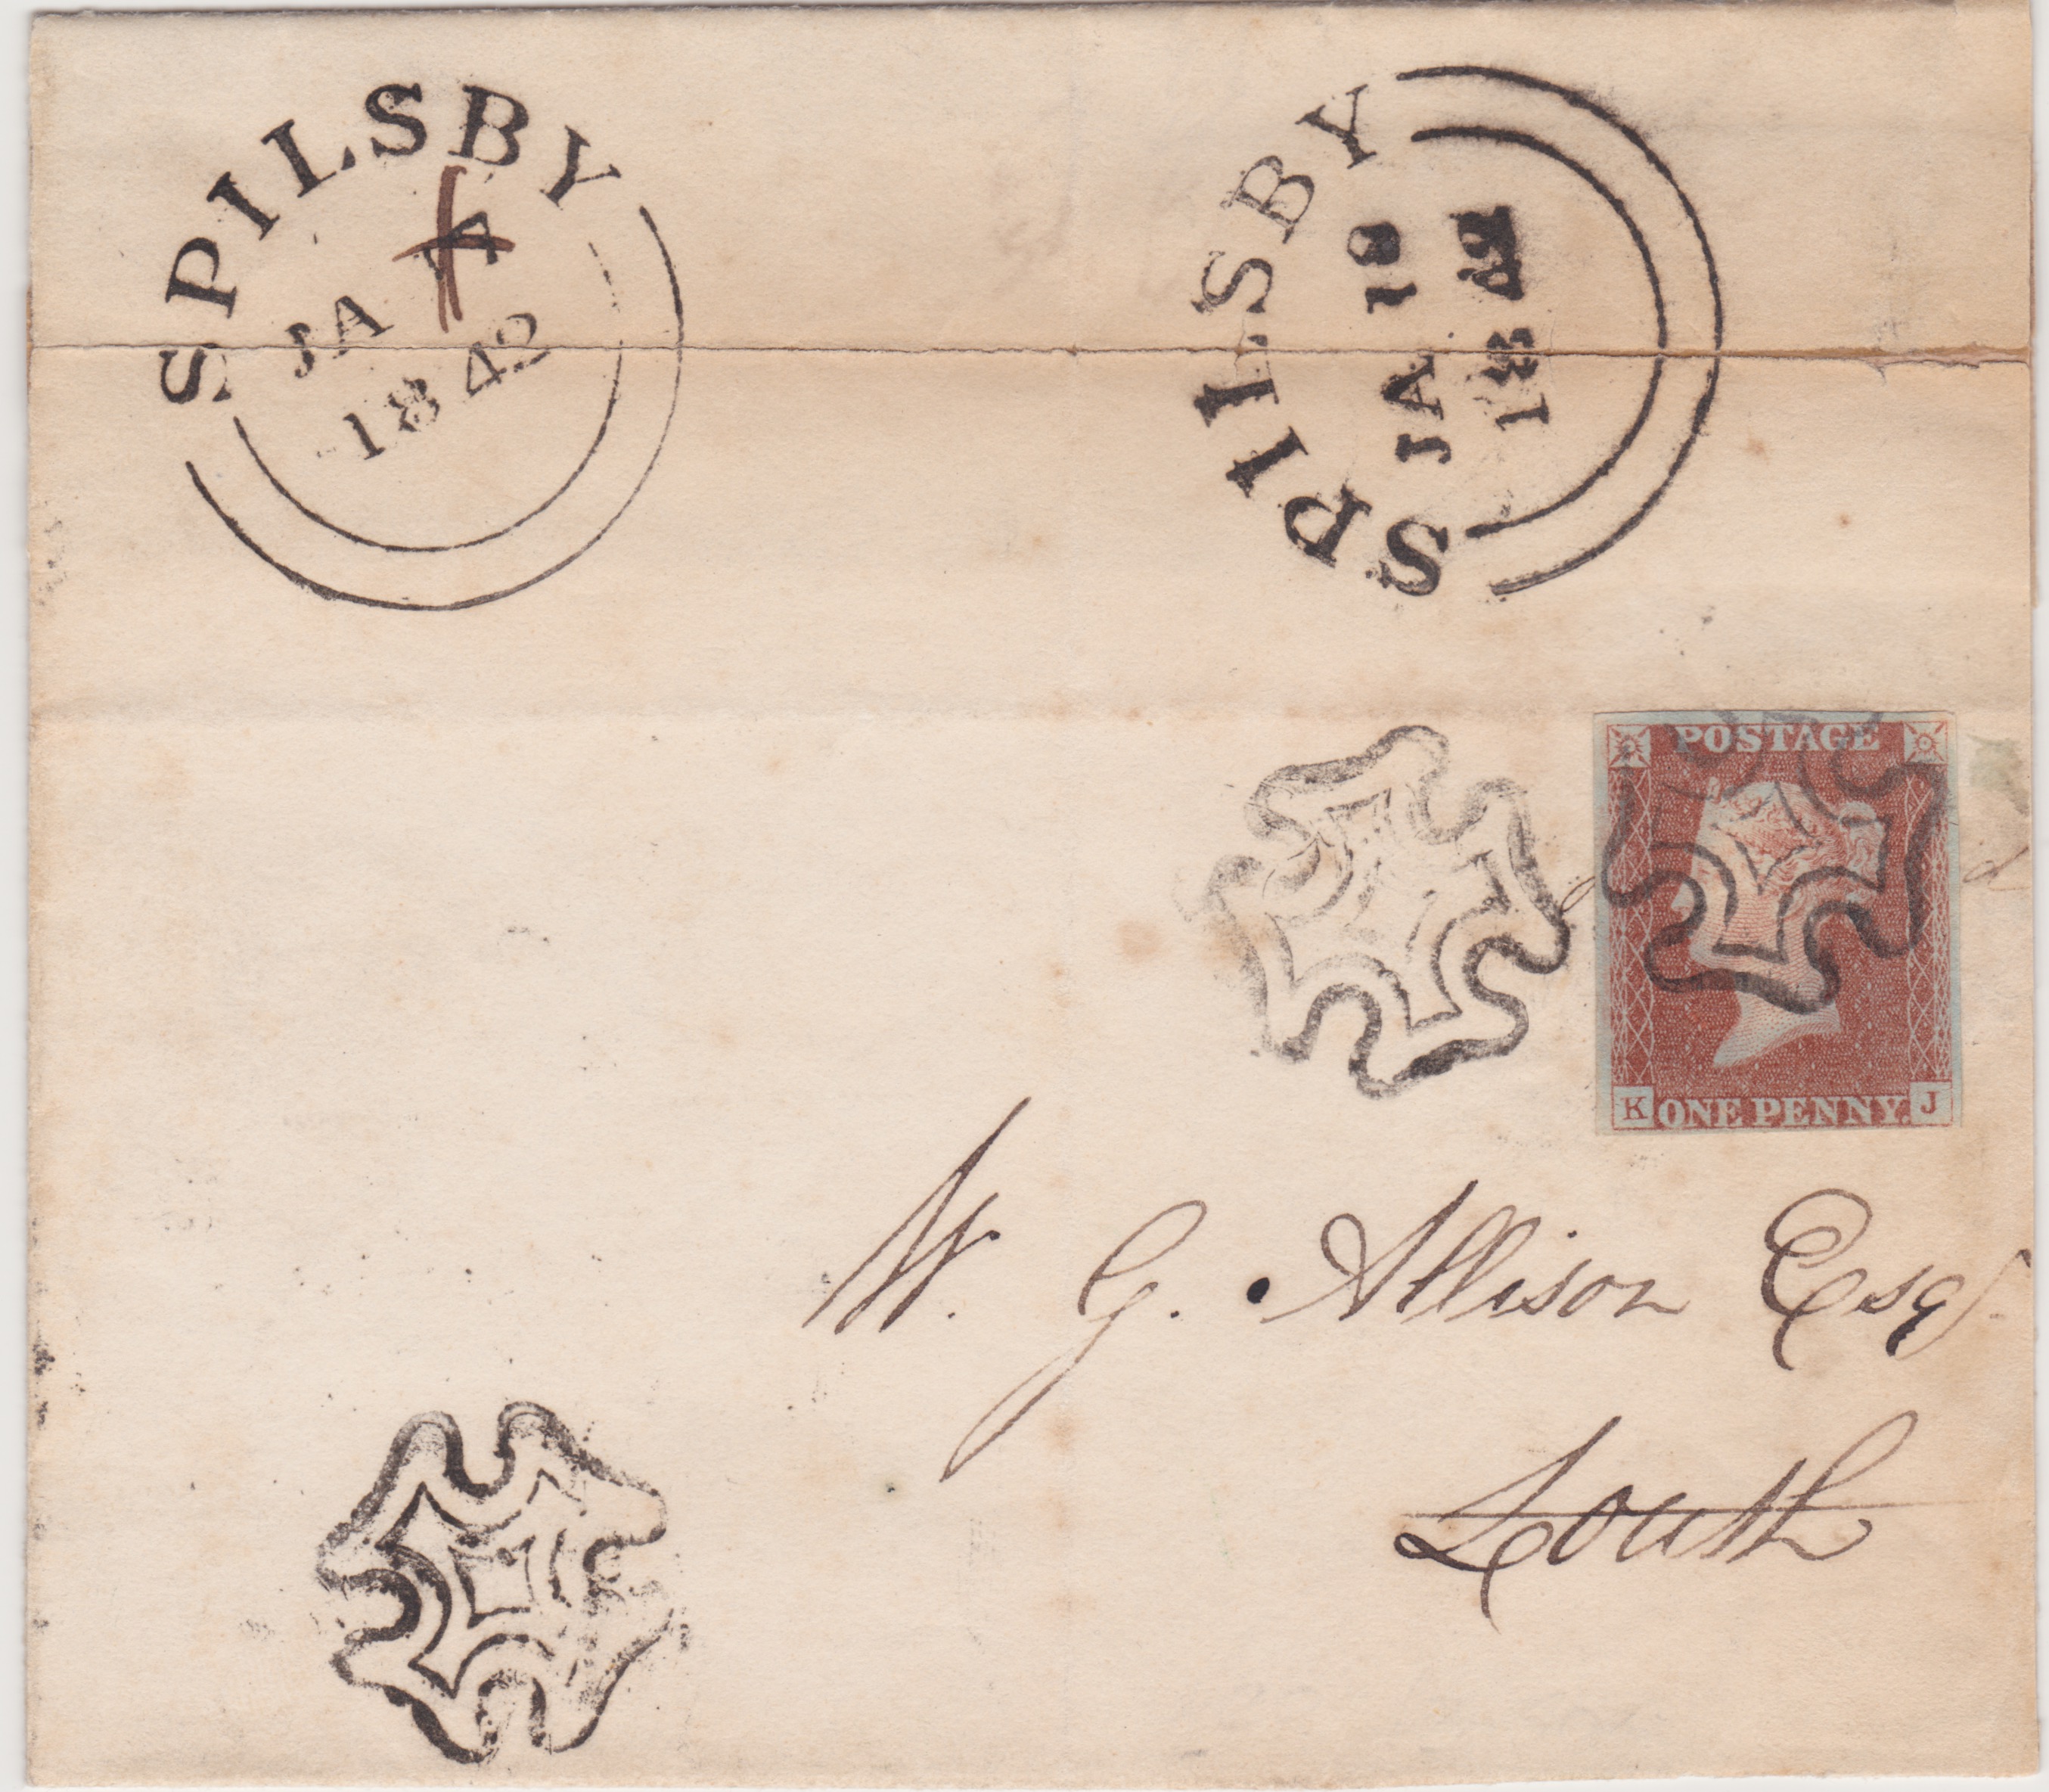 SPILSBY
JA 7
1842
SPILSBY
JA 10
1842
POSTAGE
K ONE PENNY. J
W. G. Allison Esqr.
Louth